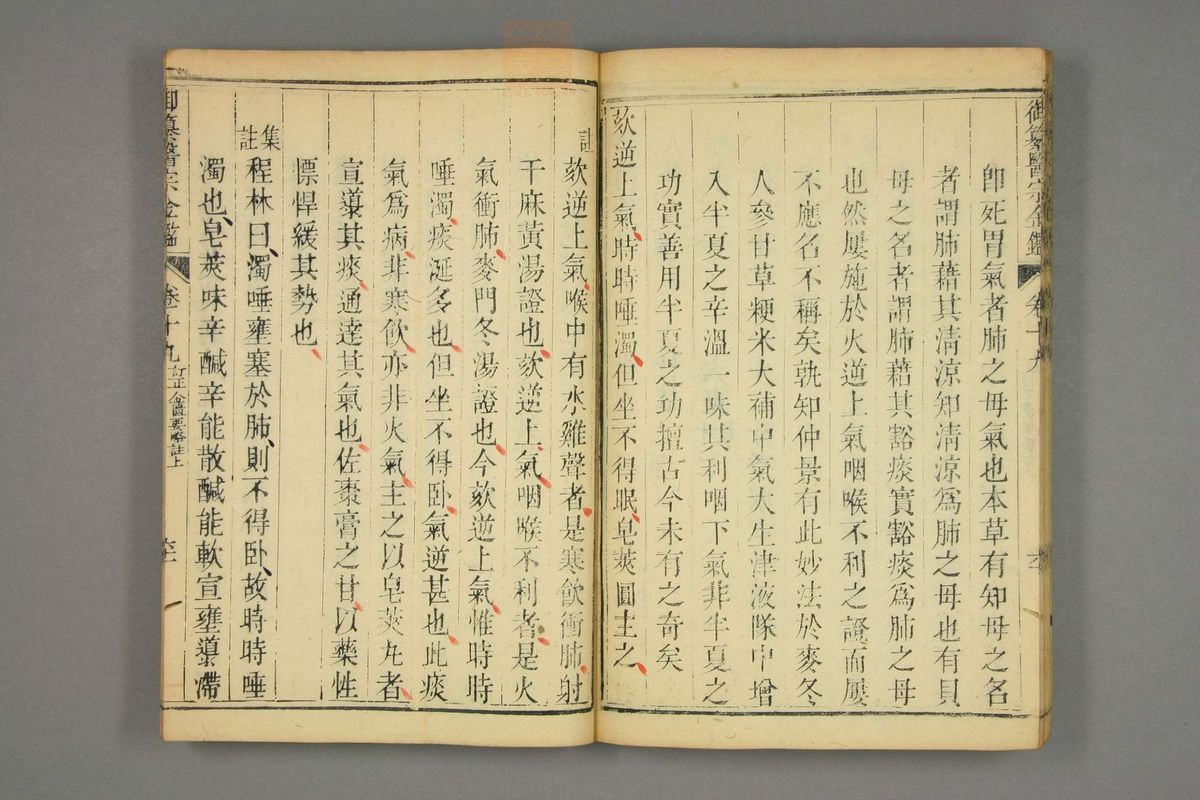 御纂醫宗金鑑 卷十九
卽死胃氣者肺之母氣也本草有知母之名
者謂肺藉其清涼知清涼爲肺之母也有貝
母之名者謂肺藉其豁痰實豁痰爲肺之母
也然屢施於火逆上氣咽喉不利之證而屢
不應名不稱矣孰知仲景有此妙法於麥冬
人參甘草粳米大補中氣大生津液隊中增
入半夏之辛溫一味其利咽下氣非半夏之
功實善用半夏之功擅古今未有之奇矣
欬逆上氣時時唾濁但坐不得眠皂莢圓主之
註
欬逆上氣喉中有水雞聲者是寒飲衝肺射
干麻黃湯證也欬逆上氣咽喉不利者是火
氣衝肺麥門冬湯證也今欬逆上氣惟時時
唾濁痰涎多也但坐不得卧氣逆甚也此痰
氣爲病非寒飲亦非火氣主之以皂莢丸者
宣導其痰通達其氣也佐棗膏之甘以藥性
慓悍緩其勢也
集註
程林曰濁唾壅塞於肺則不得卧故時時唾
濁也皂莢味辛醎辛能散醎能軟宣壅導滯
御纂醫宗金鑑 卷十九 訂正金匱要略註上